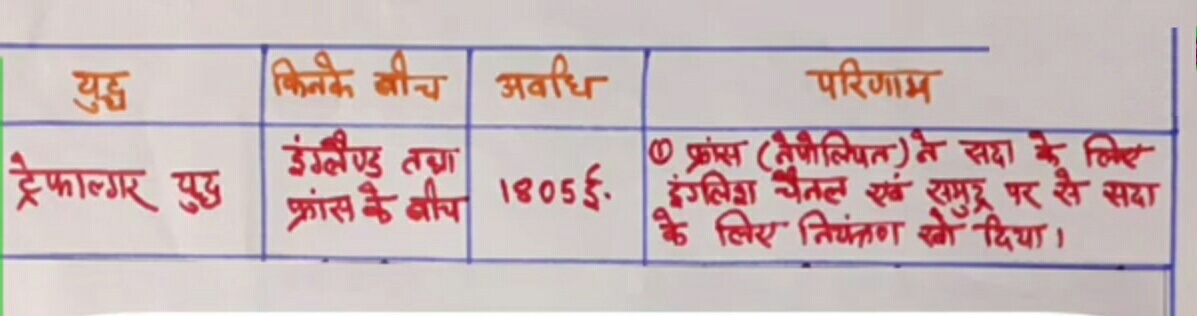 युद्ध किनके बीच अवधि परिणाम
ट्रेफाल्गर युद्ध
इंग्लैण्ड तथा
फ्रांस के बीच
1805 ई.
① फ्रांस (नेपोलियन) ने सदा के लिए
इंगलिश चैनल एवं समुद्र पर से सदा
के लिए नियंत्रण खो दिया।